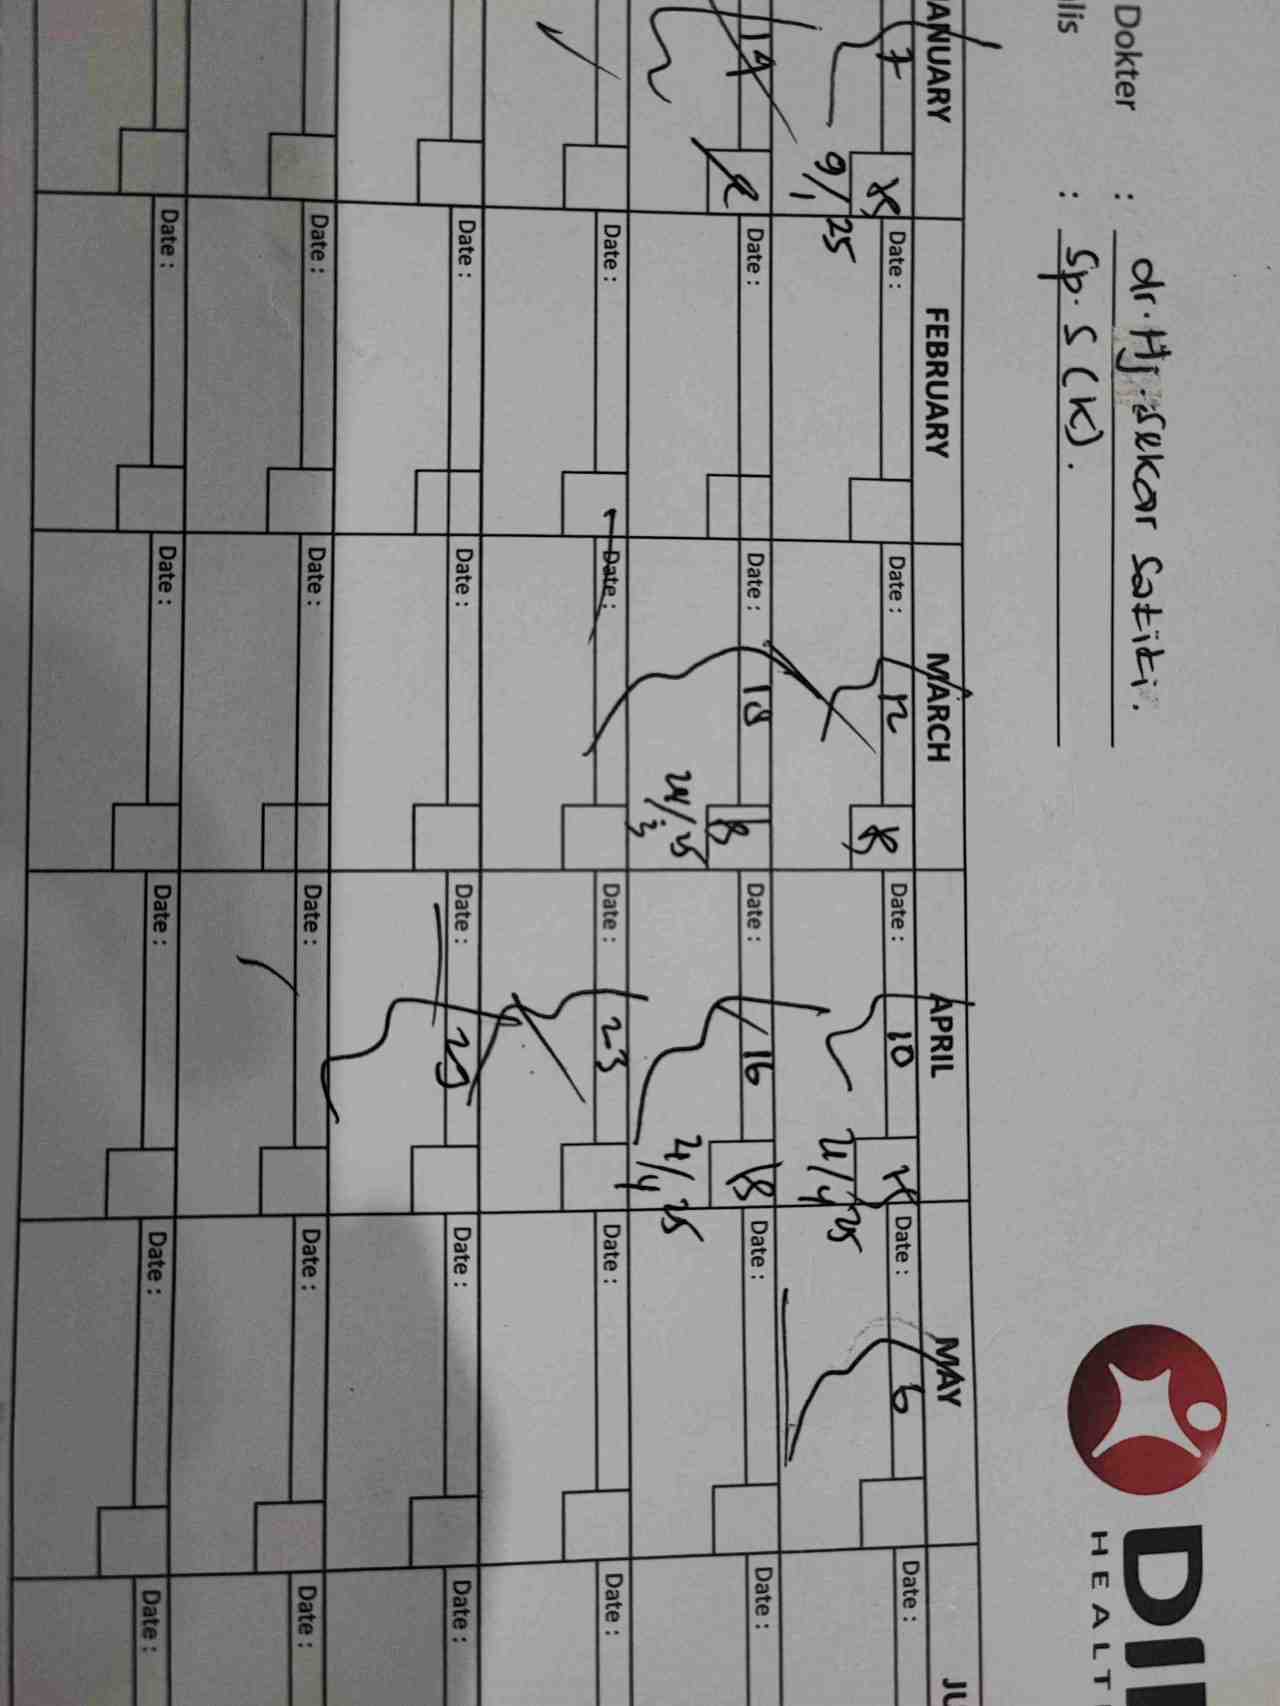 DI
HEALT
Dokter : dr. Hj. Sekar Satiti.
lis : Sp. S (K).
ANUARY FEBRUARY MARCH APRIL MAY JU
7 Date : Date : 12 Date : 10 Date : 6 Date :
9/1 25 21/4 25
19 Date : Date : 18 Date : 16 Date : Date :
24/3 25 21/4 25
Date : Date : Date : 23 Date : Date :
Date : Date : Date : 29 Date : Date :
Date : Date : Date : Date : Date :
Date : Date : Date : Date : Date :